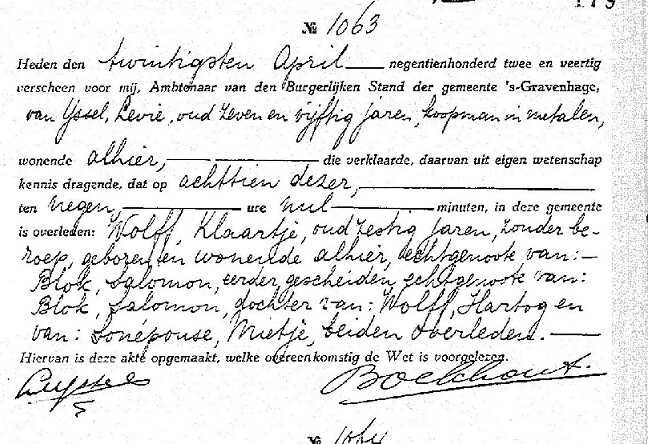 № 1063
Heden den twintigsten April negentienhonderd twee en veertig
verscheen voor mij, Ambtenaar van den Burgerlijken Stand der gemeente 's-Gravenhage,
van Yssel, Levie, oud zeven en vijftig jaren, koopman in metalen,
wonende alhier, die verklaarde, daarvan uit eigen wetenschap
kennis dragende, dat op achttien dezer,
ten negen, ure nul minuten, in deze gemeente
is overleden: Wolff, Klaartje, oud zestig jaren, zonder be-
roep, geboren en wonende alhier, echtgenoote van:
Blok, Salomon, eerder gescheiden echtgenoote van:
Blok, Salomon, dochter van: Wolff, Hartog en
van: Mietje, beiden overleden.
Hiervan is deze akte opgemaakt, welke overeenkomstig de Wet is voorgelezen.
Boekhout.
№ 1064